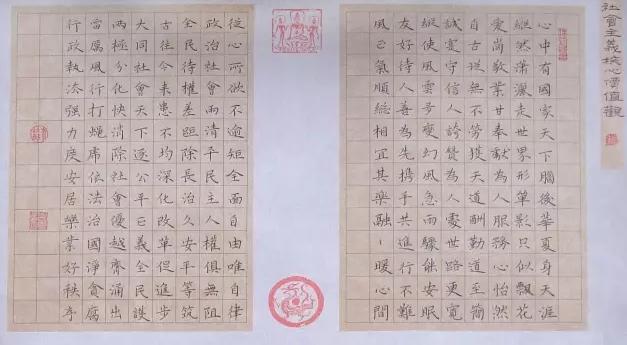 社會主義核心價值觀
心中有國家天下腦後華夏身天涯
縱然瀟灑走世界形單影只似飄花
愛崗敬業甘奉獻為人服務心怡然
自古從無不勞獲天道酬勤道至簡
誠實守信人誇贊為人處世路更寬
縱使風雲多變幻風急雨驟能安眠
友好待人善為先携手共進行不難
風正氣順總相宜其樂融々暖心間
從心所欲不逾矩全面自由唯自律
政治社會雨清平民主人權俱無阻
全民待權差距除長治久安平等筑
古往今來患不均深化改革促進步
大同社會天下逐公平正義全民談
兩極分化快消除社會優越齊涌出
當厲風行打蠅虎依法治國淨貪腐
行政執法强力度安居樂業好秩序